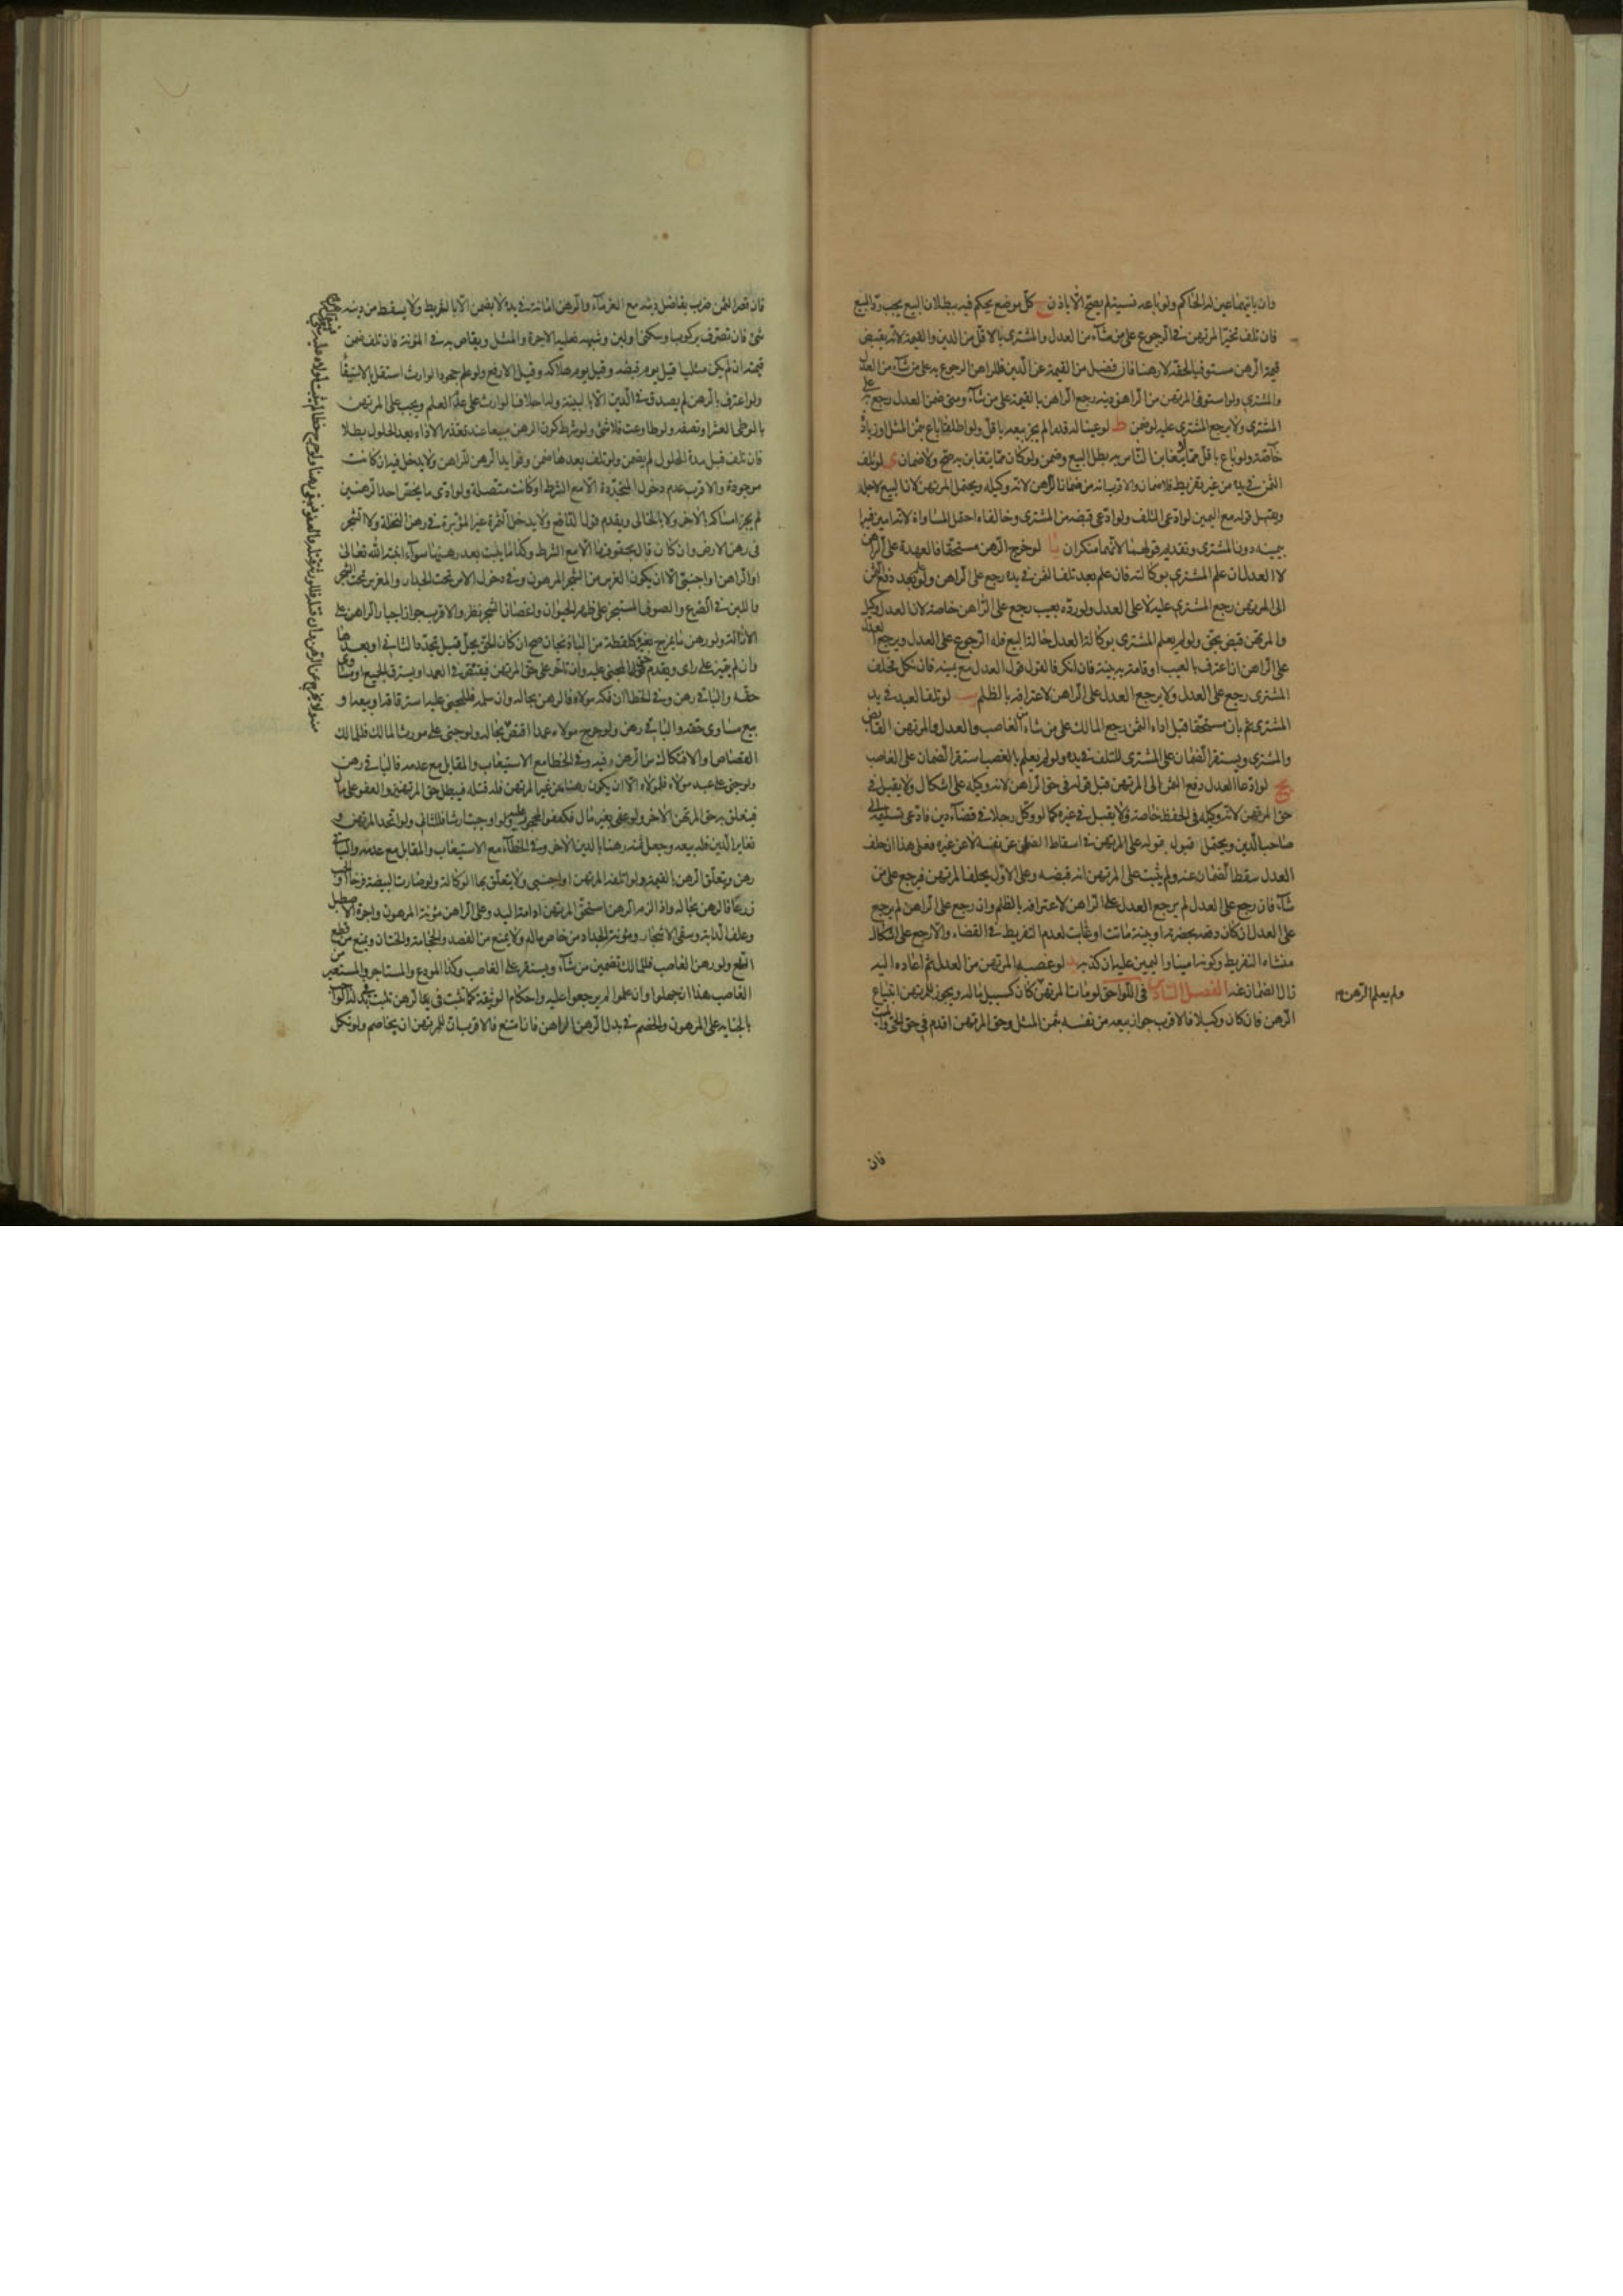 وان باتيهما عين له الحاكم ولو باعه نسيئة لم يصح الا باذن ح كل موضع يحكم فيه ببطلان البيع يجب رد المبيع
فان تلف تخير المرتهن في الرجوع على من شاء من العدل والمشتري بالاقل من الدين والقيمة لانه يقبض
قيمة الرهن مستوفيا لحقه لا رهنا فان فضل من القيمة عن الدين فللراهن الرجوع به على من شاء من العدل
والمشتري ولو استوفى المرتهن من الراهن دينه رجع الراهن بالقيمة على من شاء ومتى ضمن العدل رجع على
المشتري ولا يرجع المشتري عليه لو ضمن ط لو عينا له قدرا لم يجز بيعه باقل ولو اطلقا باع بثمن المثل او زيادة
خاصة ولو باع باقل مما يتغابن الناس به بطل البيع وضمن ولو كان مما يتغابن به صح ولا ضمان ى لو تلف
الثمن في يده من غير تفريط فلا ضمان والاقرب انه من ضمان الراهن لانه وكيله ويحتمل المرتهن لان البيع لاجله
ويقبل قوله مع اليمين لو ادعى التلف ولو ادعى قبضه من المشتري وخالفاه احتمل المساواة لانه امين فيرا
بيمينه دون المشتري وتقديم قولهما لانهما منكران يا لو خرج الرهن مستحقا فالعهدة على الراهن
لا العدل ان علم المشتري بوكالته فان علم بعد تلف الثمن في يده رجع على الراهن ولو بعد دفع الثمن
الى المرتهن رجع المشتري عليه لا على العدل ولو رده بعيب رجع على الراهن خاصة لان العدل وكيل
والمرتهن قبض بحق ولو لم يعلم المشتري بوكالة العدل حالة البيع فله الرجوع على العدل ويرجع العدل
على الراهن ان اعترف بالعيب او قامت به بينة فان انكر فالقول قول العدل مع يمينه فان نكل فحلف
المشتري رجع على العدل ولا يرجع العدل على الراهن لاعترافه بالظلم يب لو تلف العبد في يد
المشتري ثم بان مستحقا قبل اداء الثمن رجع المالك على من شاء من الغاصب والعدل والمرتهن القابض
والمشتري ويستقر الضمان على المشتري للتلف في يده ولو لم يعلم بالغصب استقر الضمان على الغاصب
يج لو ادعا العدل دفع الثمن الى المرتهن قبل قوله في حق الراهن لانه وكيله على اشكال ولا يقبل في
حق المرتهن لانه وكيله في الحفظ خاصة فلا يقبل في غيره كما لو وكل رجلا في قضاء دين فادعى تسليمه الى
صاحب الدين ويحتمل قبول قوله على المرتهن في اسقاط الضمان عن نفسه لا عن غيره فعلى هذا ان حلف
العدل سقط الضمان عنه ولم يثبت على المرتهن انه قبضه وعلى الاول يحلف المرتهن فيرجع على من
شاء فان رجع على العدل لم يرجع العدل على الراهن لاعترافه بالظلم وان رجع على الراهن لم يرجع
على العدل ان كان دفعه بحضرته او ببينة ماتت او غابت لعدم التفريط في القضاء والا رجع على اشكال
منشاه التفريط وكونه امينا واليمين عليه ان كذبه يد لو غصبه المرتهن من العدل ثم اعاده اليه
زال الضمان عنه الفصل السادس في اللواحق لو مات المرتهن كان كسبيل ماله ويجوز للمرتهن ابتياع
الرهن فان كان وكيلا فالاقرب جواز بيعه من نفسه بثمن المثل وحق المرتهن اقدم في حق الحي والميت
ولم يعلم الرهن
فان
فان قصر الثمن ضرب بفاضل دينه مع الغرماء والرهن امانة في يده لا يضمن الا بالتفريط ولا يسقط من دينه
شئ فان تصرف بركوب او سكنى او لبن وشبهه فعليه الاجرة والمثل ويقاص به في المؤنة فان تلف ضمن
قيمته ان لم يكن مثليا قيل يوم قبضه وقيل يوم هلاكه وقيل الارفع ولو علم جحود الوارث استقل بالاستيفا
ولو اعترف بالرهن لم يصدق في الدين الا بالبينة وله احلاف الوارث على عدم العلم ويجب على المرتهن
بالوطى العشر او نصفه ولو طاوعت فلا شئ ولو شرط كون الرهن مبيعا عند تعذر الاداء بعد الحلول بطلا
فان تلف قبل مدة الحلول لم يضمن ولو تلف بعدها ضمن وفوايد الرهن للراهن ولا يدخل فيه ان كانت
موجودة والاقرب عدم دخول المتجددة الا مع الشرط او كانت متصلة ولو ادى ما يختص احد الرهنين
لم يجز امساكه بالاخر ولا بالخالى ويقدم قول الدافع ولا يدخل الثمرة غير المؤبرة في رهن النخلة ولا الشجر
في رهن الارض وان كان قال بحقوقها الا مع الشرط وكذا ما ينبت بعد رهنها سواء انبته الله تعالى
او الراهن او اجنبى الا ان يكون الغرس من الشجر المرهون وفي دخول الاس تحت الجدار والمغرس تحت الشجر
واللبن في الضرع والصوف المستجز على ظهر الحيوان واغصان الشجر نظر والاقرب جواز اجبار الراهن على
الازالة ولو رهن ما يمزج بغيره كلقطة من الباذنجان صح ان كان الحق يحل قبل تجدد الثانية او بعدها
وان لم يتميز على راى ويقدم حق المجنى عليه وان تاخر على حق المرتهن فيقتص في العمد او يسترق الجميع او مساوى
حقه والباقى رهن وفي الخطا ان فكه مولاه فالرهن بحاله وان سلمه فللمجنى عليه استرقاقه او بيعه او
بيع مساوى حقه والباقى رهن ولو جرح مولاه عمدا اقتص بحاله ولو جنى على مورث المالك فللمالك
القصاص والافتكاك من الرهن فيه وفي الخطا مع الاستيعاب والمقابل مع عدمه فالباقى رهن
ولو جنى على عبد مولاه فلمولاه الا ان يكون رهنا من غير المرتهن فله قتله فيبطل حق المرتهنين والعفو على مال
فيتعلق به حق المرتهن الاخر ولو عفى بغير مال فكعفو المحجور عليه ولو اوجبت ارشا فللثاني ولو اتحد المرتهن و
تغاير الدين فله بيعه وجعل ثمنه رهنا بالدين الاخر وفي الخطاء مع الاستيعاب والمقابل مع عدمه والباقى
رهن ويتعلق الرهن بالقيمة ولو اتلفه المرتهن او اجنبى ولا يتعلق بها الوكالة ولو صارت البيضة فرخا او الحب
زرعا فالرهن بحاله واذا لزم الرهن استحق المرتهن ادامة اليد وعلى الراهن مؤنة المرهون واجرة الاصطبل
وعلف الدابة وسقى الاشجار ومؤنة الجداد من خاص ماله ولا يمنع من الفصد والحجامة والختان ويمنع من قطع
السلع ولو رهن الغاصب فللمالك تضمين من شاء ويستقر على الغاصب وكذا المودع والمستاجر والمستعير من
الغاصب هذا ان جهلوا وان علموا لم يرجعوا عليه واحكام الوثيقة كما تثبت في الرهن تثبت في بدله الواجب
بالجناية على المرهون والخصم في بدل الرهن الراهن فان امتنع فالاقرب ان للمرتهن ان يخاصم ولو نكل